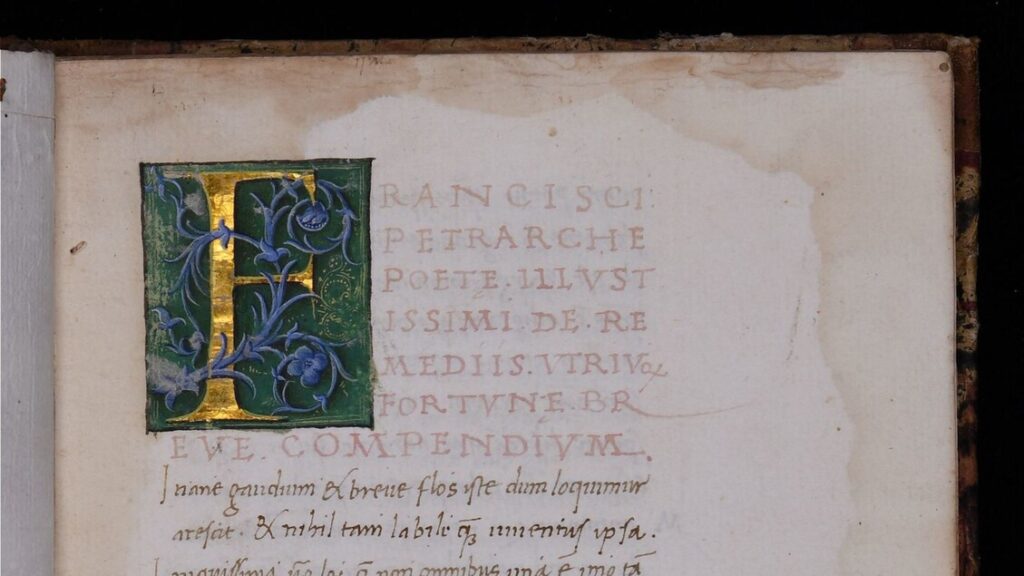 FRANCISCI
PETRARCHE
POETE. ILLVST
ISSIMI. DE. RE
MEDIIS. VTRIVꝗ
FORTVNE. BR
EVE. COMPENDIVM.
Inane gaudium & breue flos iste dum loquimur
arescit. & nihil tam labile ꝗ̃ iuuentus ipsa.
omnibus